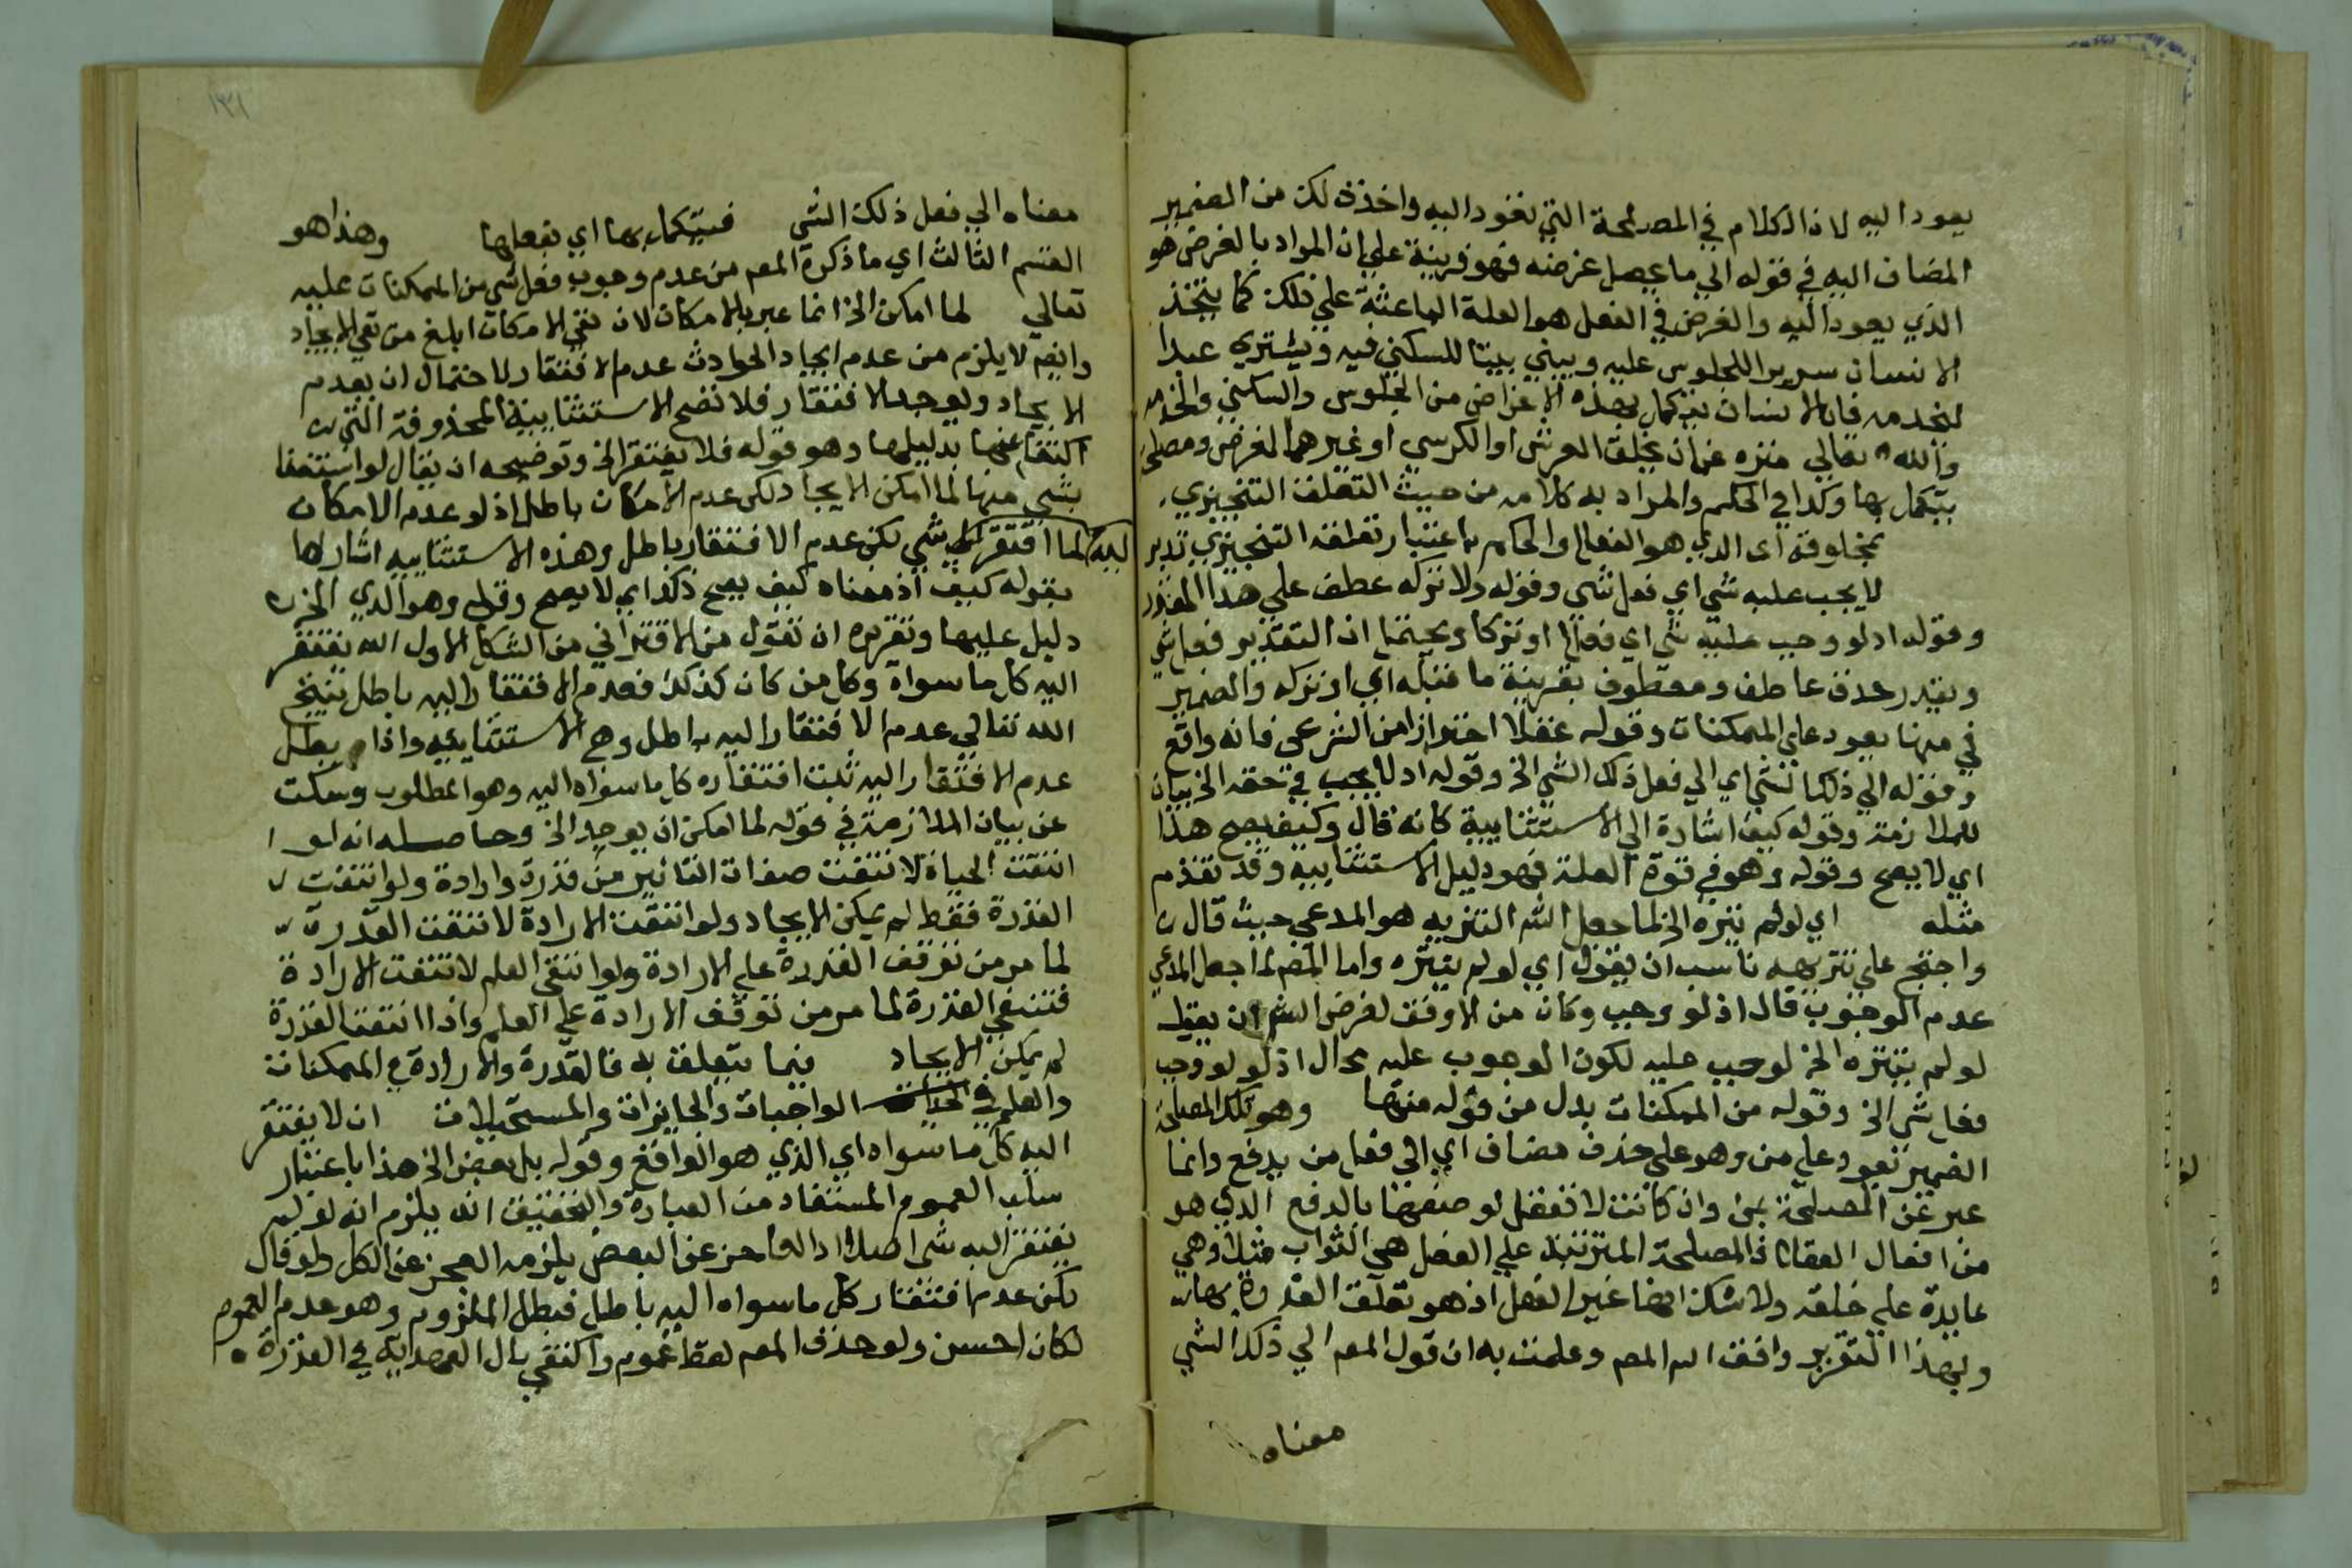 يعود اليه لان الكلام في المصلحة التي تعود اليه واخذ ذلك من الضمير
المضاف اليه في قوله الي ما يحصل غرضه فهو قرينة علي ان المراد بالغرض هو
الذي يعود اليه والغرض في الفعل هو العلة الباعثة علي ذلك كما يتخذ
الانسان سريرا للجلوس عليه ويبني بيتا للسكني فيه ويشتري عبدا
ليخدمه فان الانسان يتكمل بهذه الاغراض من الجلوس والسكني والخدمه
والله تعالي منزه عن ان يخلق العرش او الكرسي او غيرهما لغرض ومصلحة
يتكمل بها وكذا في الحكم والمراد به كلامه من حيث التعلق التنجيزي
بمخلوقه اي الذي هو الفعل والحكم باعتبار تعلقه التنجيزي تدبر
لا يجب عليه شي اي فعل شي وقوله ولا تركه عطف علي هذا المقدر
وقوله اذ لو وجب عليه شي اي فعلا او تركا ويحتمل ان التقدير فعل شي
ويقدر حذف عاطف ومعطوف بقرينة ما قبله اي او تركه والضمير
في منها يعود علي الممكنات وقوله عقلا احترازا من الشرعي فانه واقع
وقوله الي ذلك الشي اي الي فعل ذلك الشي الخ وقوله اذ لا يجب في حقه الخ بيان
للملازمة وقوله كيف اشارة الي الاستثنائية كانه قال وكيف يصح هذا
اي لا يصح وقوله وهو في قوة العلة فهو دليل الاستثنائيه وقد تقدم
مثله اي لو لم يتنزه الخ لما جعل الش التنزيه هو المدعي حيث قال
واحتج علي تنزيهه ناسب ان يقول اي لو لم يتنزه واما المص لما جعل المدعي
عدم الوجوب قال اذ لو وجب وكان من الاوفق لغرض الش ان يقول
لو لم يتنزه الخ لوجب عليه لكون الوجوب عليه محال اذ لو لو وجب
فعل شي الخ وقوله من الممكنات بدل من قوله منها وهو تلك المصلحة
الضمير يعود علي من وهو علي حذف مضاف اي الي فعل من يدفع وانما
عبر عن المصلحة بمن وان كانت لا تعقل لوصفها بالدفع الذي هو
من افعال العقلا فالمصلحة المترتبة علي الفعل هي الثواب مثلا وهي
عايدة علي خلقه ولا شك انها غير الفعل اذ هو تعلق القدرة بها
وبهذا التقرير وافق الش المص وعلمت به ان قول المص الي ذلك الشي
معناه
١٣١
معناه الي فعل ذلك الشي فيتكمل بها اي بفعلها وهذا هو
القسم الثالث اي ما ذكره المص من عدم وجوب فعل شي من الممكنات عليه
تعالي لما امكن الخ انما عبر بالامكان لان نفي الامكان ابلغ من نفي الايجاد
وايضم لا يلزم من عدم ايجاد الحوادث عدم الافتقار لاحتمال ان يعدم
الايجاد ويوجد الافتقار فلا تصح الاستثنائية المحذوفة التي
اكتفا عنها بدليلها وهو قوله فلا يفتقر الخ وتوضيحه ان يقال لو انتفا
شي منها لما امكن الايجاد لكن عدم الامكان باطل اذ لو عدم الامكان
لما افتقر اليه شي لكن عدم الافتقار باطل وهذه الاستثنائيه اشار لها
بقوله كيف اذ معناه كيف يصح ذلك اي لا يصح وقوله وهو الذي الخ
دليل عليها وتقريره ان تقول من الاقتراني من الشكل الاول الله يفتقر
اليه كل ما سواه وكل من كان كذلك فعدم الافتقار اليه باطل ينتج
الله تعالي عدم الافتقار اليه باطل وهي الاستثنائيه واذا بطل
عدم الافتقار اليه ثبت افتقاره كل ما سواه اليه وهو المطلوب وسكت
عن بيان الملازمة في قوله لما امكن ان يوجد الخ وحاصله انه لو
انتفت الحياة لانتفت صفات التاثير من قدرة وارادة ولو انتفت
القدرة فقط لم يمكن الايجاد ولو انتفت الارادة لانتفت القدرة
لما مر من توقف القدرة علي الارادة ولو انتفي العلم لانتفت الارادة
فتنتفي القدرة لما مر من توقف الارادة علي العلم واذا انتفت القدرة
لم يمكن الايجاد فيما يتعلق به فالقدرة والارادة في الممكنات
والعلم في الواجبات والجايزات والمستحيلات ان لا يفتقر
اليه كل ما سواه اي الذي هو الواقع وقوله بل بعض الخ هذا باعتبار
سلب العموم المستفاد من العبارة والتحقيق انه يلزم انه لو لم
يفتقر اليه شي اصلا اذ العاجز عن البعض يلزمه العجز عن الكل ولو قال
لكن عدم افتقار كل ما سواه اليه باطل فبطل الملزوم وهو عدم العموم
لكان احسن ولو حذف المص لفظ عموم واكتفي بال العهدية في القدرة